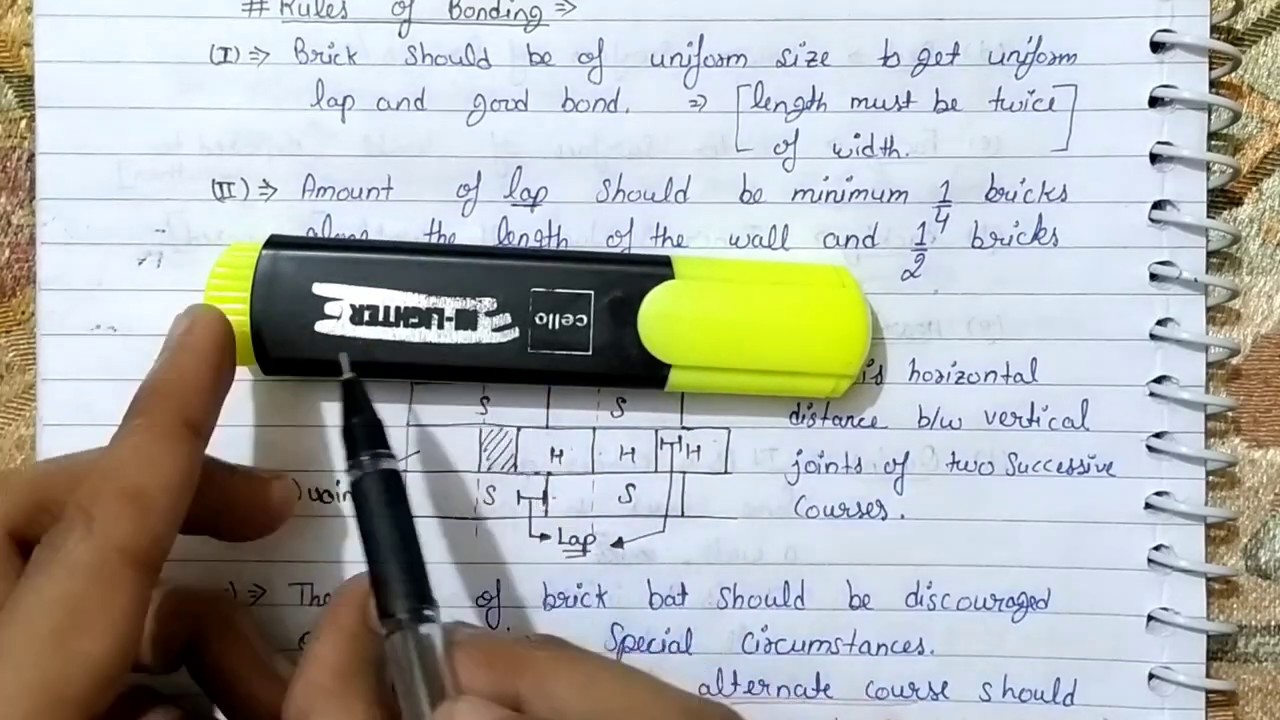 # Rules of Bonding ⇒
(I) ⇒ Brick should be of uniform size to get uniform
lap and good bond. ⇒ [length must be twice
of width.]
(II) ⇒ Amount of lap should be minimum 1/4 bricks
along the length of the wall and 1/2 bricks
HI-LIGHTER cello
is horizontal
S S
distance b/w vertical
H H H
joints of two successive
S S
courses.
Lap
⇒ The of brick bat should be discouraged
Special Circumstances.
alternate course should